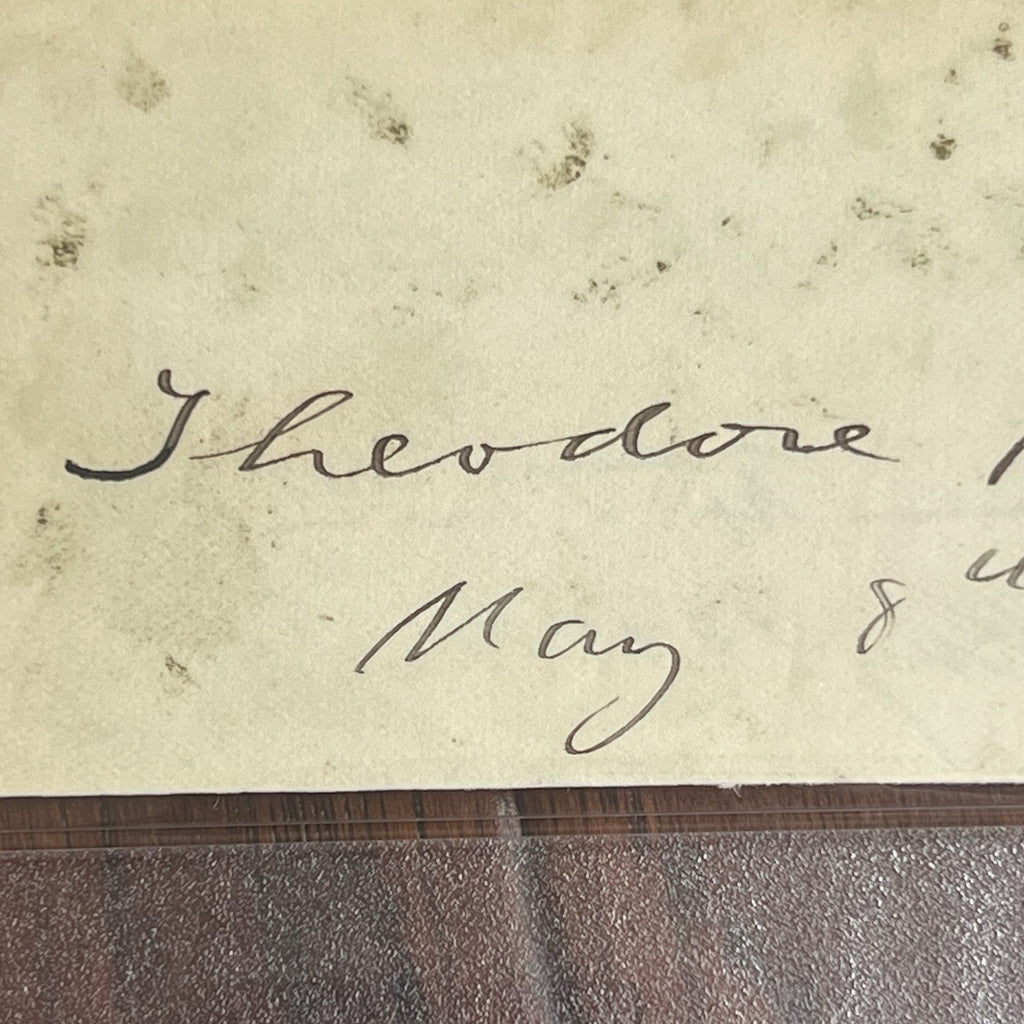 Theodore
May 8th